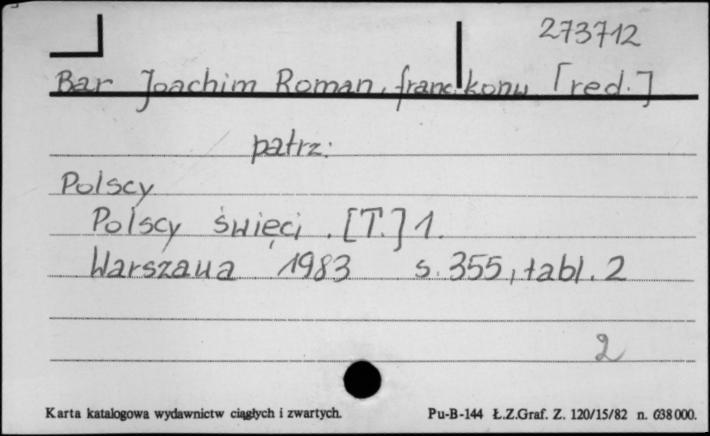 273712
Bar Joachim Roman, franc. konw. [red.]
patrz:
Polscy
Polscy święci. [T.] 1.
Warszawa 1983 s. 355, tabl. 2
2
Karta katalogowa wydawnictw ciągłych i zwartych.
Pu-B-144 Ł.Z.Graf. Z. 120/15/82 n. 638000.